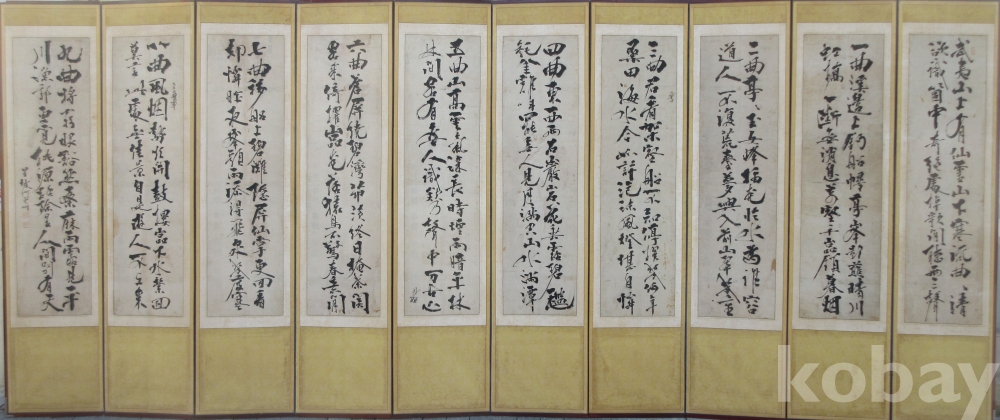 武夷山上有仙靈山下寒流曲〻清
欲識箇中奇絶處棹歌閑聽兩三聲
一曲溪邊上釣船幔亭峯影蘸晴川
虹橋一斷無消息萬壑千岩鎖暮烟
二曲亭〻玉女峰插花臨水爲誰容
道人不復荒臺夢興入前山翠幾重
三曲君看架壑船不知停棹幾何年
桑田海水今如許泡沫風燈堪自憐
四曲東西兩石巖岩花垂露碧㲯
毿金雞叫罷無人見月滿空山水滿潭
五曲山高雲氣深長時烟雨暗平林
林間有客無人識欸乃聲中万古心
六曲蒼屏繞碧灣茅茨終日掩柴關
客來倚櫂岩花落猿鳥不驚春意閑
七曲移船上碧灘隱屏仙掌更回看
却憐昨夜峯頭雨添得飛泉幾度寒
八曲風烟勢欲開鼓樓岩下水縈洄
莫言此處無佳景自是遊人不上來
九曲將窮眼豁然桑麻雨露見平
川漁郎更覓桃源路除是人間別有天
kobay